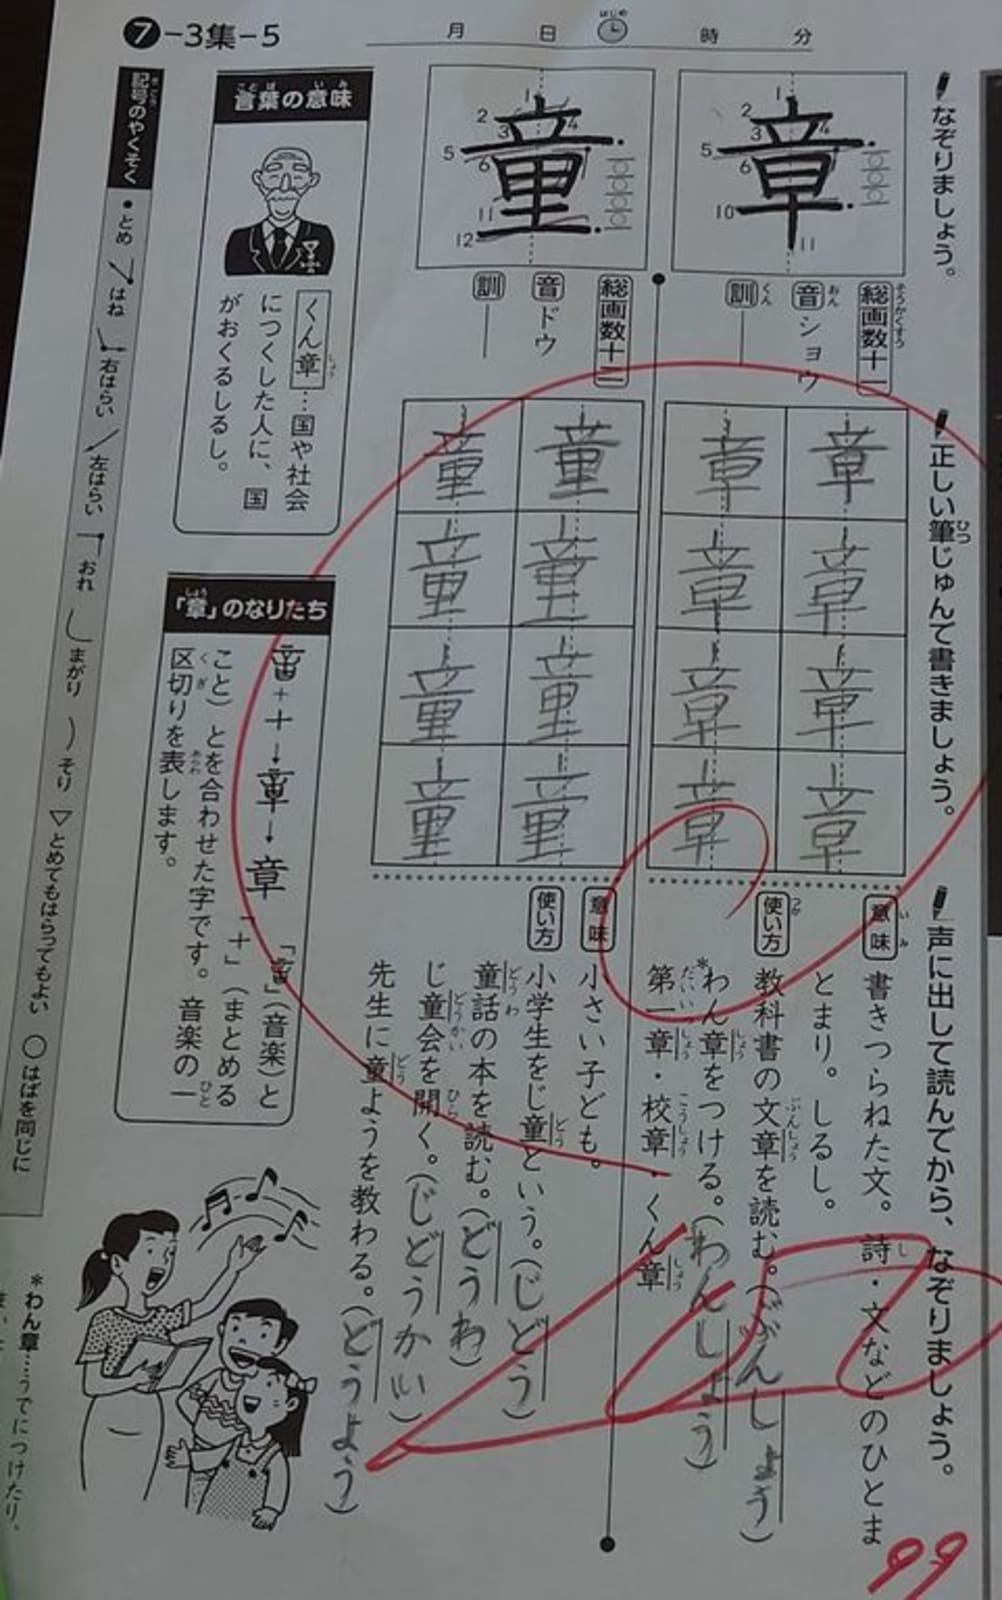 7-3集-5
月 日 時 分
はじめ
なぞりましょう。
正しい筆じゅんで書きましょう。
ひつ
声に出して読んでから、なぞりましょう。
章
1
2
3
4
5
6
10
11
総画数十一
そうかくすう
音 ショウ
おん
訓
くん
章 章
章 章
章 章
章 章
意味 書きつらねた文。詩・文などのひとま
いみ
し
とまり。しるし。
使い方 教科書の文章を読む。(ぶんしょう)
つか
ぶんしょう
*わん章をつける。(わんしょう)
しょう
第一章・校章・くん章
だいいっしょう
こうしょう
しょう
童
1
2
3
4
5
6
11
12
総画数十二
音 ドウ
訓
童 童
童 童
童 童
童 童
意味 小さい子ども。
使い方 小学生をじ童という。(じどう)
どう
童話の本を読む。(どうわ)
どうわ
じ童会を開く。(じどうかい)
どうかい
ひら
先生に童ようを教わる。(どうよう)
どう
言葉の意味
ことば
いみ
くん章…国や社会
しょう
につくした人に、国
がおくるしるし。
「章」のなりたち
しょう
+十→章→章
」(音楽)と
「十」(まとめる
こと)とを合わせた字です。音楽の一
ひと
区切りを表します。
くぎ
あらわ
記号のやくそく
きごう
・とめ
はね
右はらい
左はらい
おれ
まがり
そり
▽とめてもはらってもよい
○はばを同じに
*わん章……うでにつけたり、
99